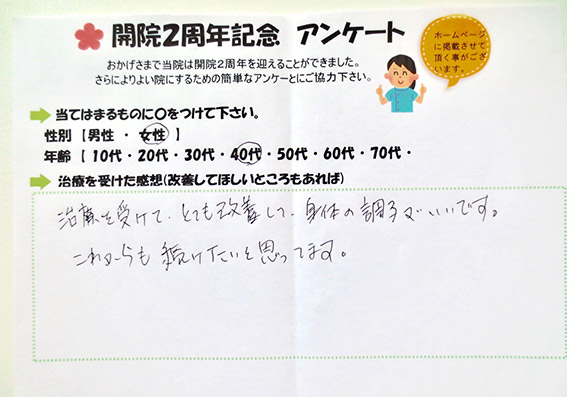 開院2周年記念 アンケート
ホームページ
に掲載させて
頂く事がござ
います。
おかげさまで当院は開院2周年を迎えることができました。
さらによりよい院にするための簡単なアンケーとにご協力下さい。
当てはまるものに〇をつけて下さい。
性別 【 男性 ・ 女性 】
年齢 【 10代・20代・30代・40代・50代・60代・70代・
治療を受けた感想(改善してほしいところもあれば)
治療を受けて、とても改善して、身体の調子がいいです。
これからも続けたいと思ってます。